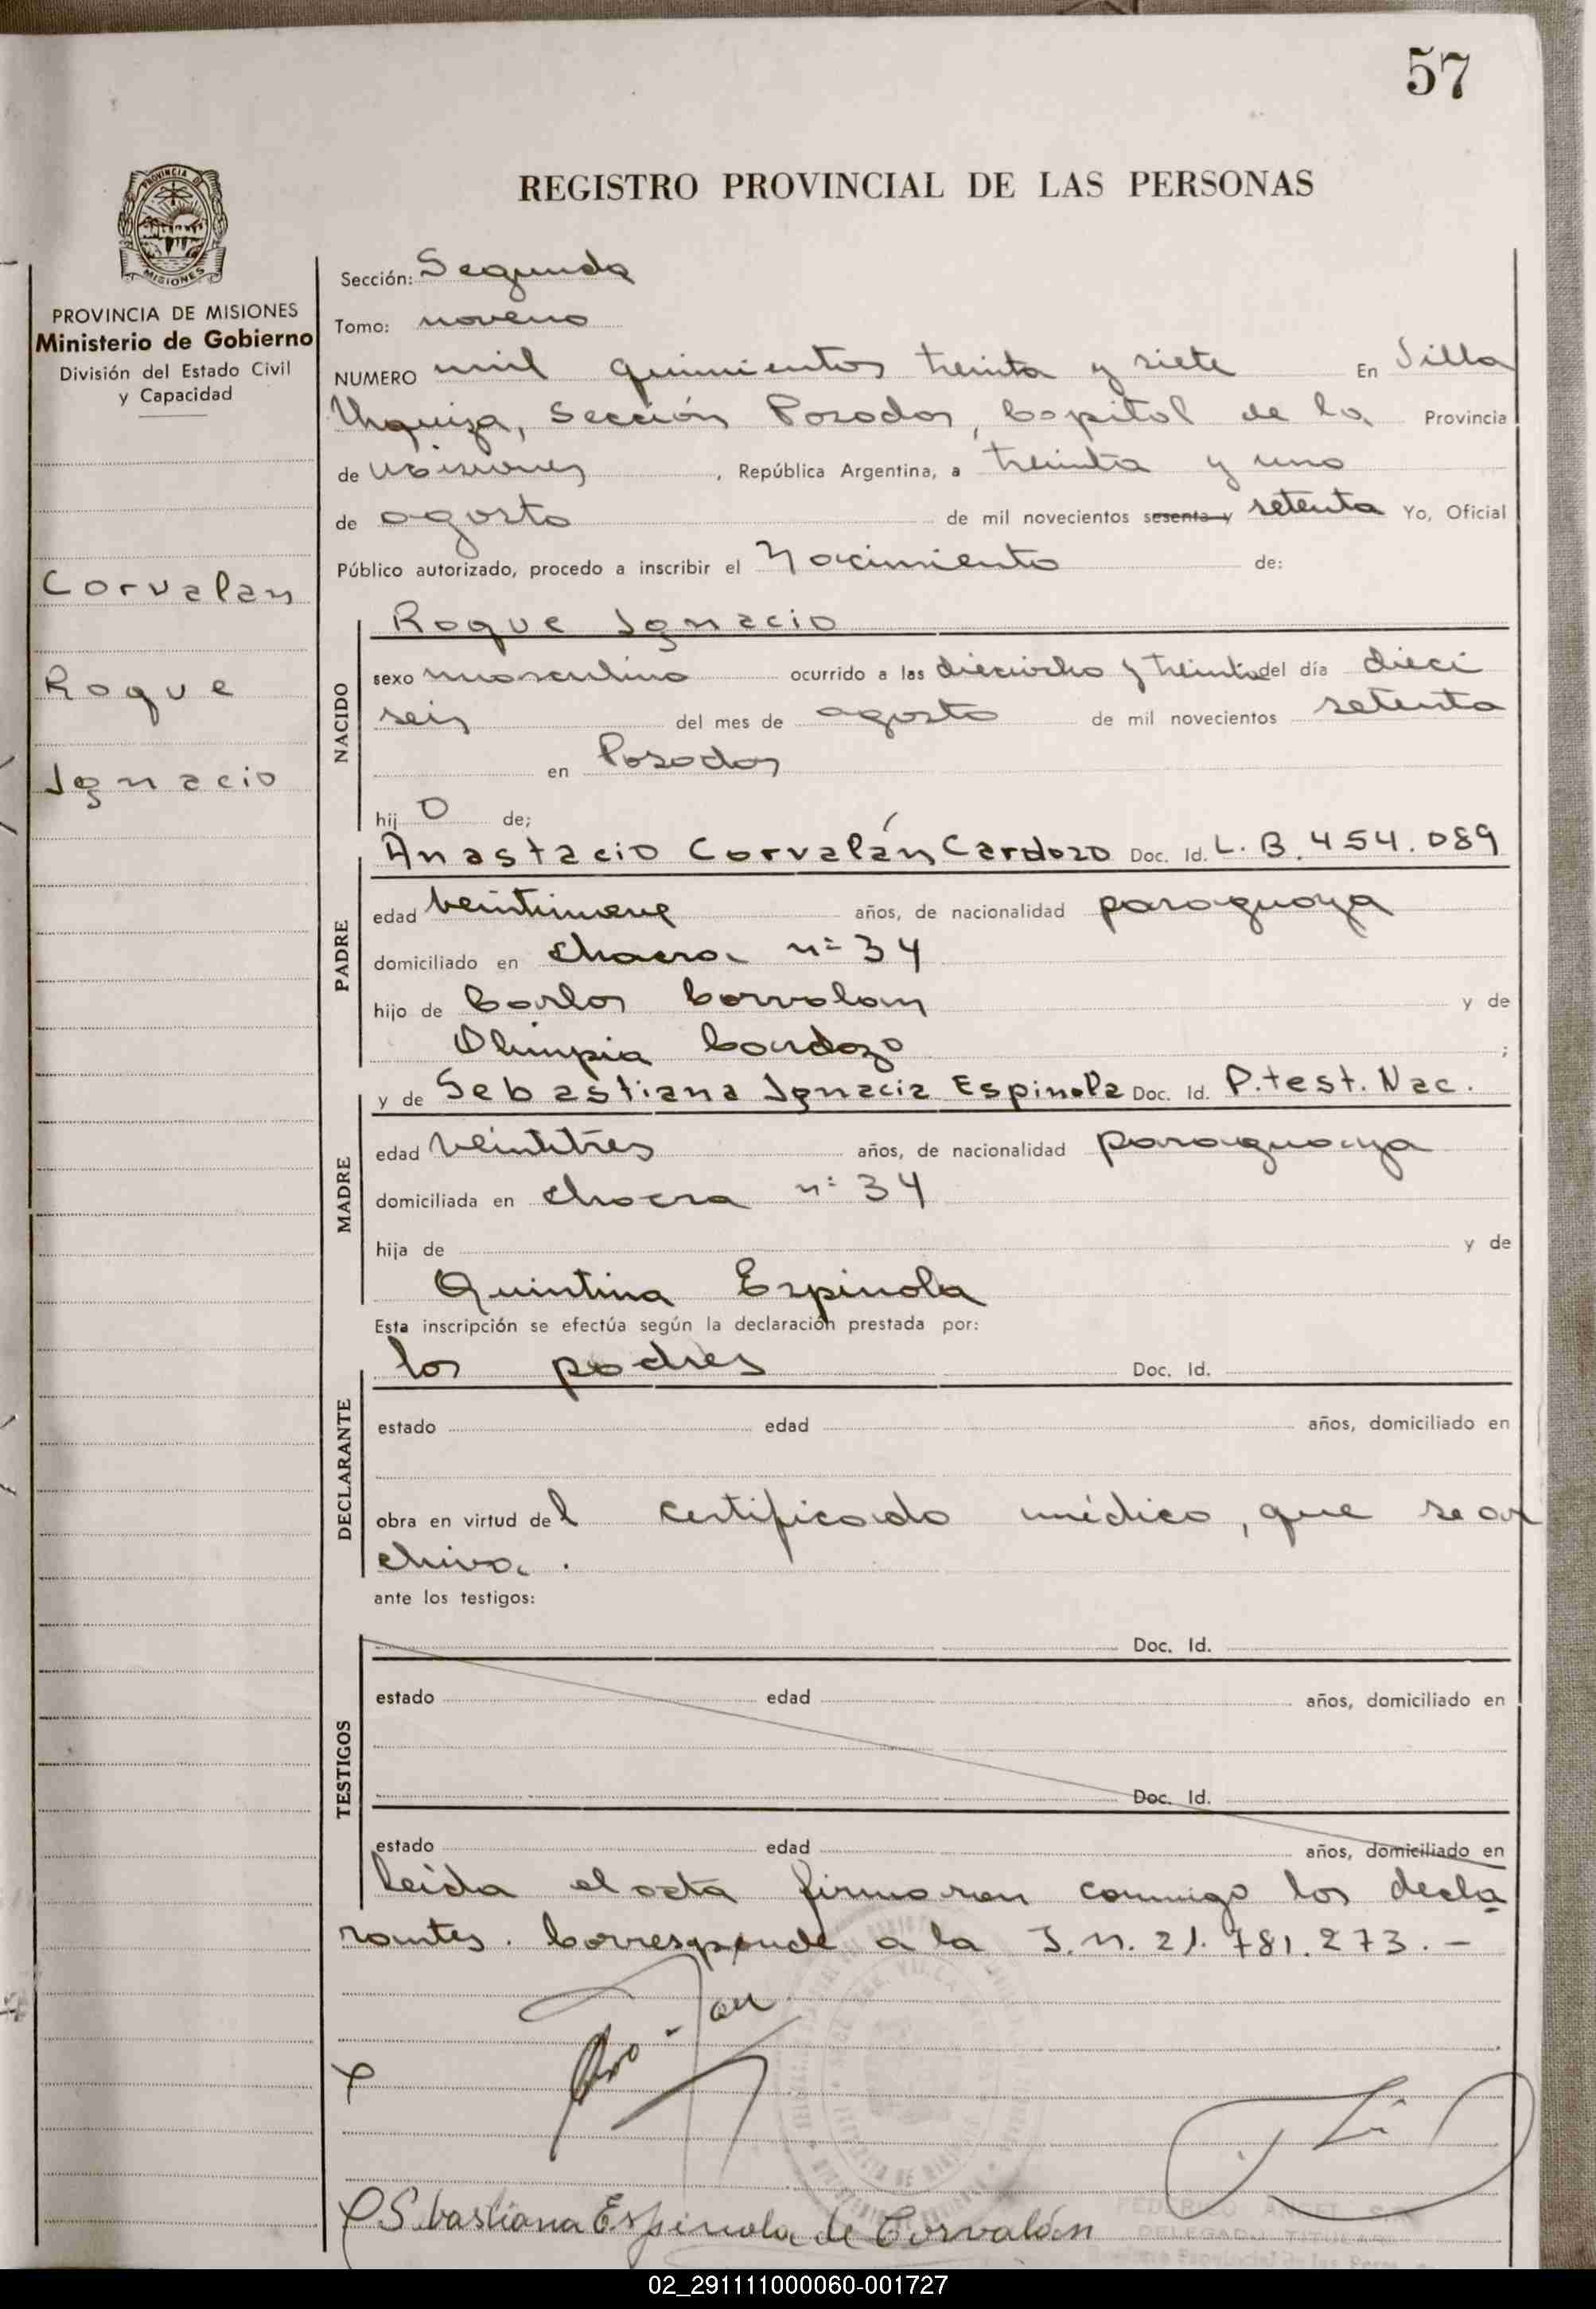 57
REGISTRO PROVINCIAL DE LAS PERSONAS
PROVINCIA DE MISIONES
PROVINCIA DE MISIONES
Ministerio de Gobierno
División del Estado Civil
y Capacidad
Corvalan
Roque
Ignacio
Sección: Segunda
Tomo: noveno
NUMERO mil quinientos treinta y siete En Villa
Urquiza, Sección Posadas, Capital de la Provincia
de Misiones, República Argentina, a treinta y uno
de agosto de mil novecientos sesenta y setenta Yo, Oficial
Público autorizado, procedo a inscribir el Nacimiento de:
NACIDO
Roque Ignacio
sexo masculino ocurrido a las dieciocho y treinta del día dieci
seis del mes de agosto de mil novecientos setenta
en Posadas
hij o de;
PADRE
Anastacio Corvalán Cardozo Doc. Id. L.B. 454.089
edad veintinueve años, de nacionalidad paraguaya
domiciliado en chacra nº 34
hijo de Carlos Corvalan y de
Olimpia Cardozo ;
MADRE
y de Sebastiana Ignacia Espinola Doc. Id. P.test. Nac.
edad veintitres años, de nacionalidad paraguaya
domiciliada en chacra nº 34
hija de y de
Quintina Espinola
Esta inscripción se efectúa según la declaración prestada por:
DECLARANTE
los padres Doc. Id.
estado edad años, domiciliado en
obra en virtud del certificado médico, que se ar
chiva.
ante los testigos:
TESTIGOS
Doc. Id.
estado edad años, domiciliado en
Doc. Id.
estado edad años, domiciliado en
Leída el acta firmaron conmigo los decla
rantes. Corresponde a la I.N. 21.781.273.-
Sbastiana Espinola de Corvalán
FEDERICO ANGEL
DELEGADO TITULAR
02_291111000060-001727